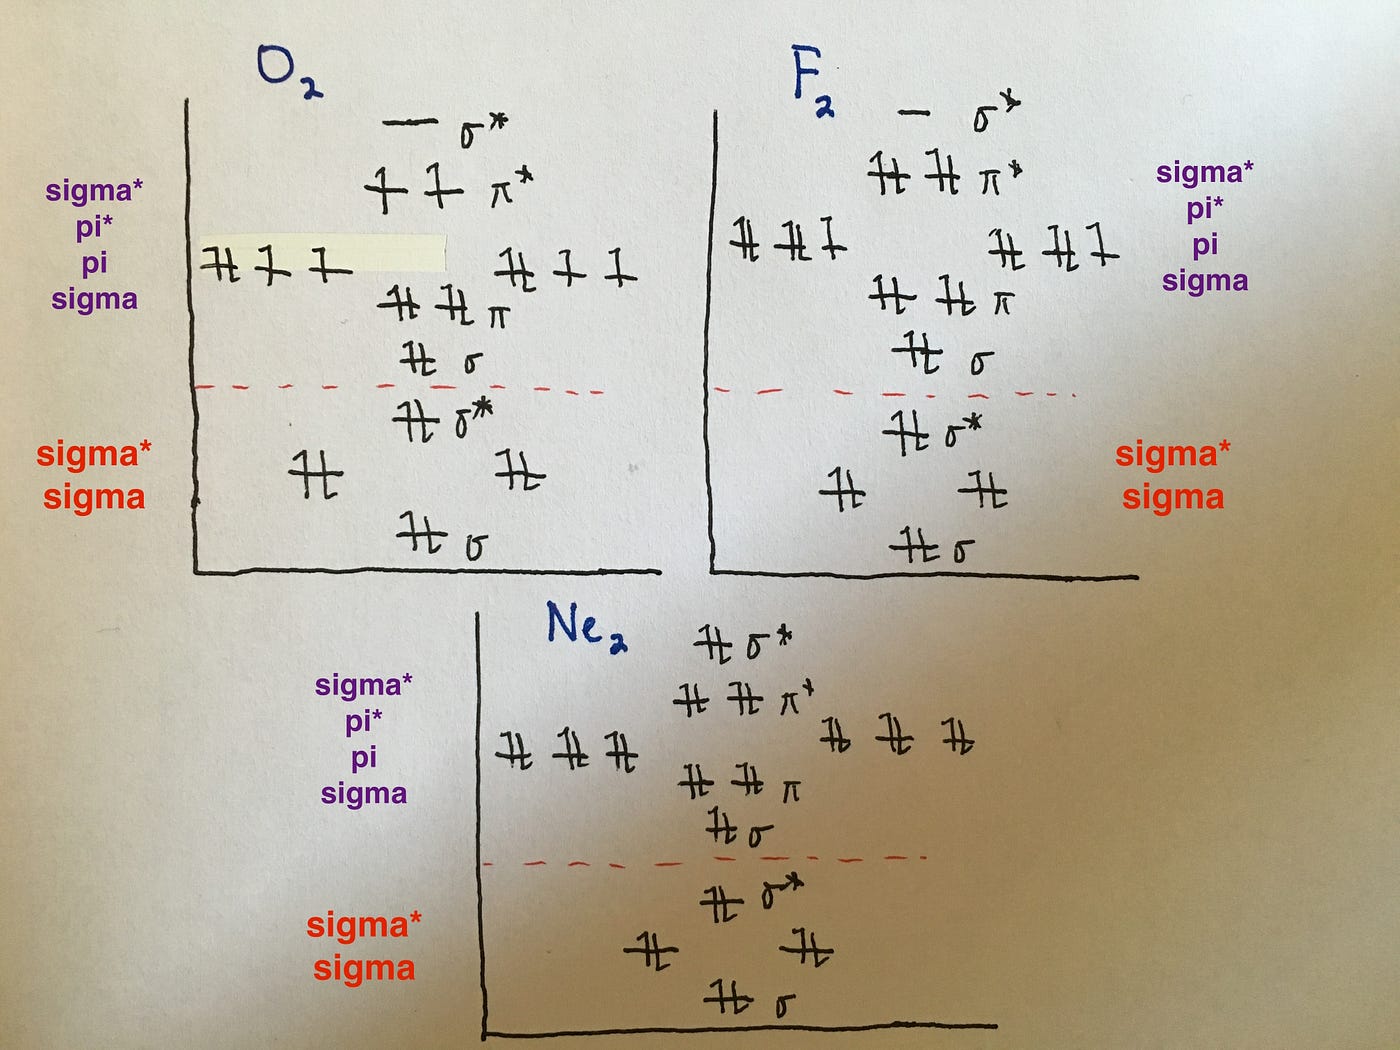 O₂
σ*
π*
sigma*
pi*
pi
sigma
π
σ
σ*
sigma*
sigma
σ
F₂
σ*
π*
sigma*
pi*
pi
sigma
π
σ
σ*
sigma*
sigma
σ
Ne₂
σ*
sigma*
pi*
pi
sigma
π*
π
σ
σ*
sigma*
sigma
σ